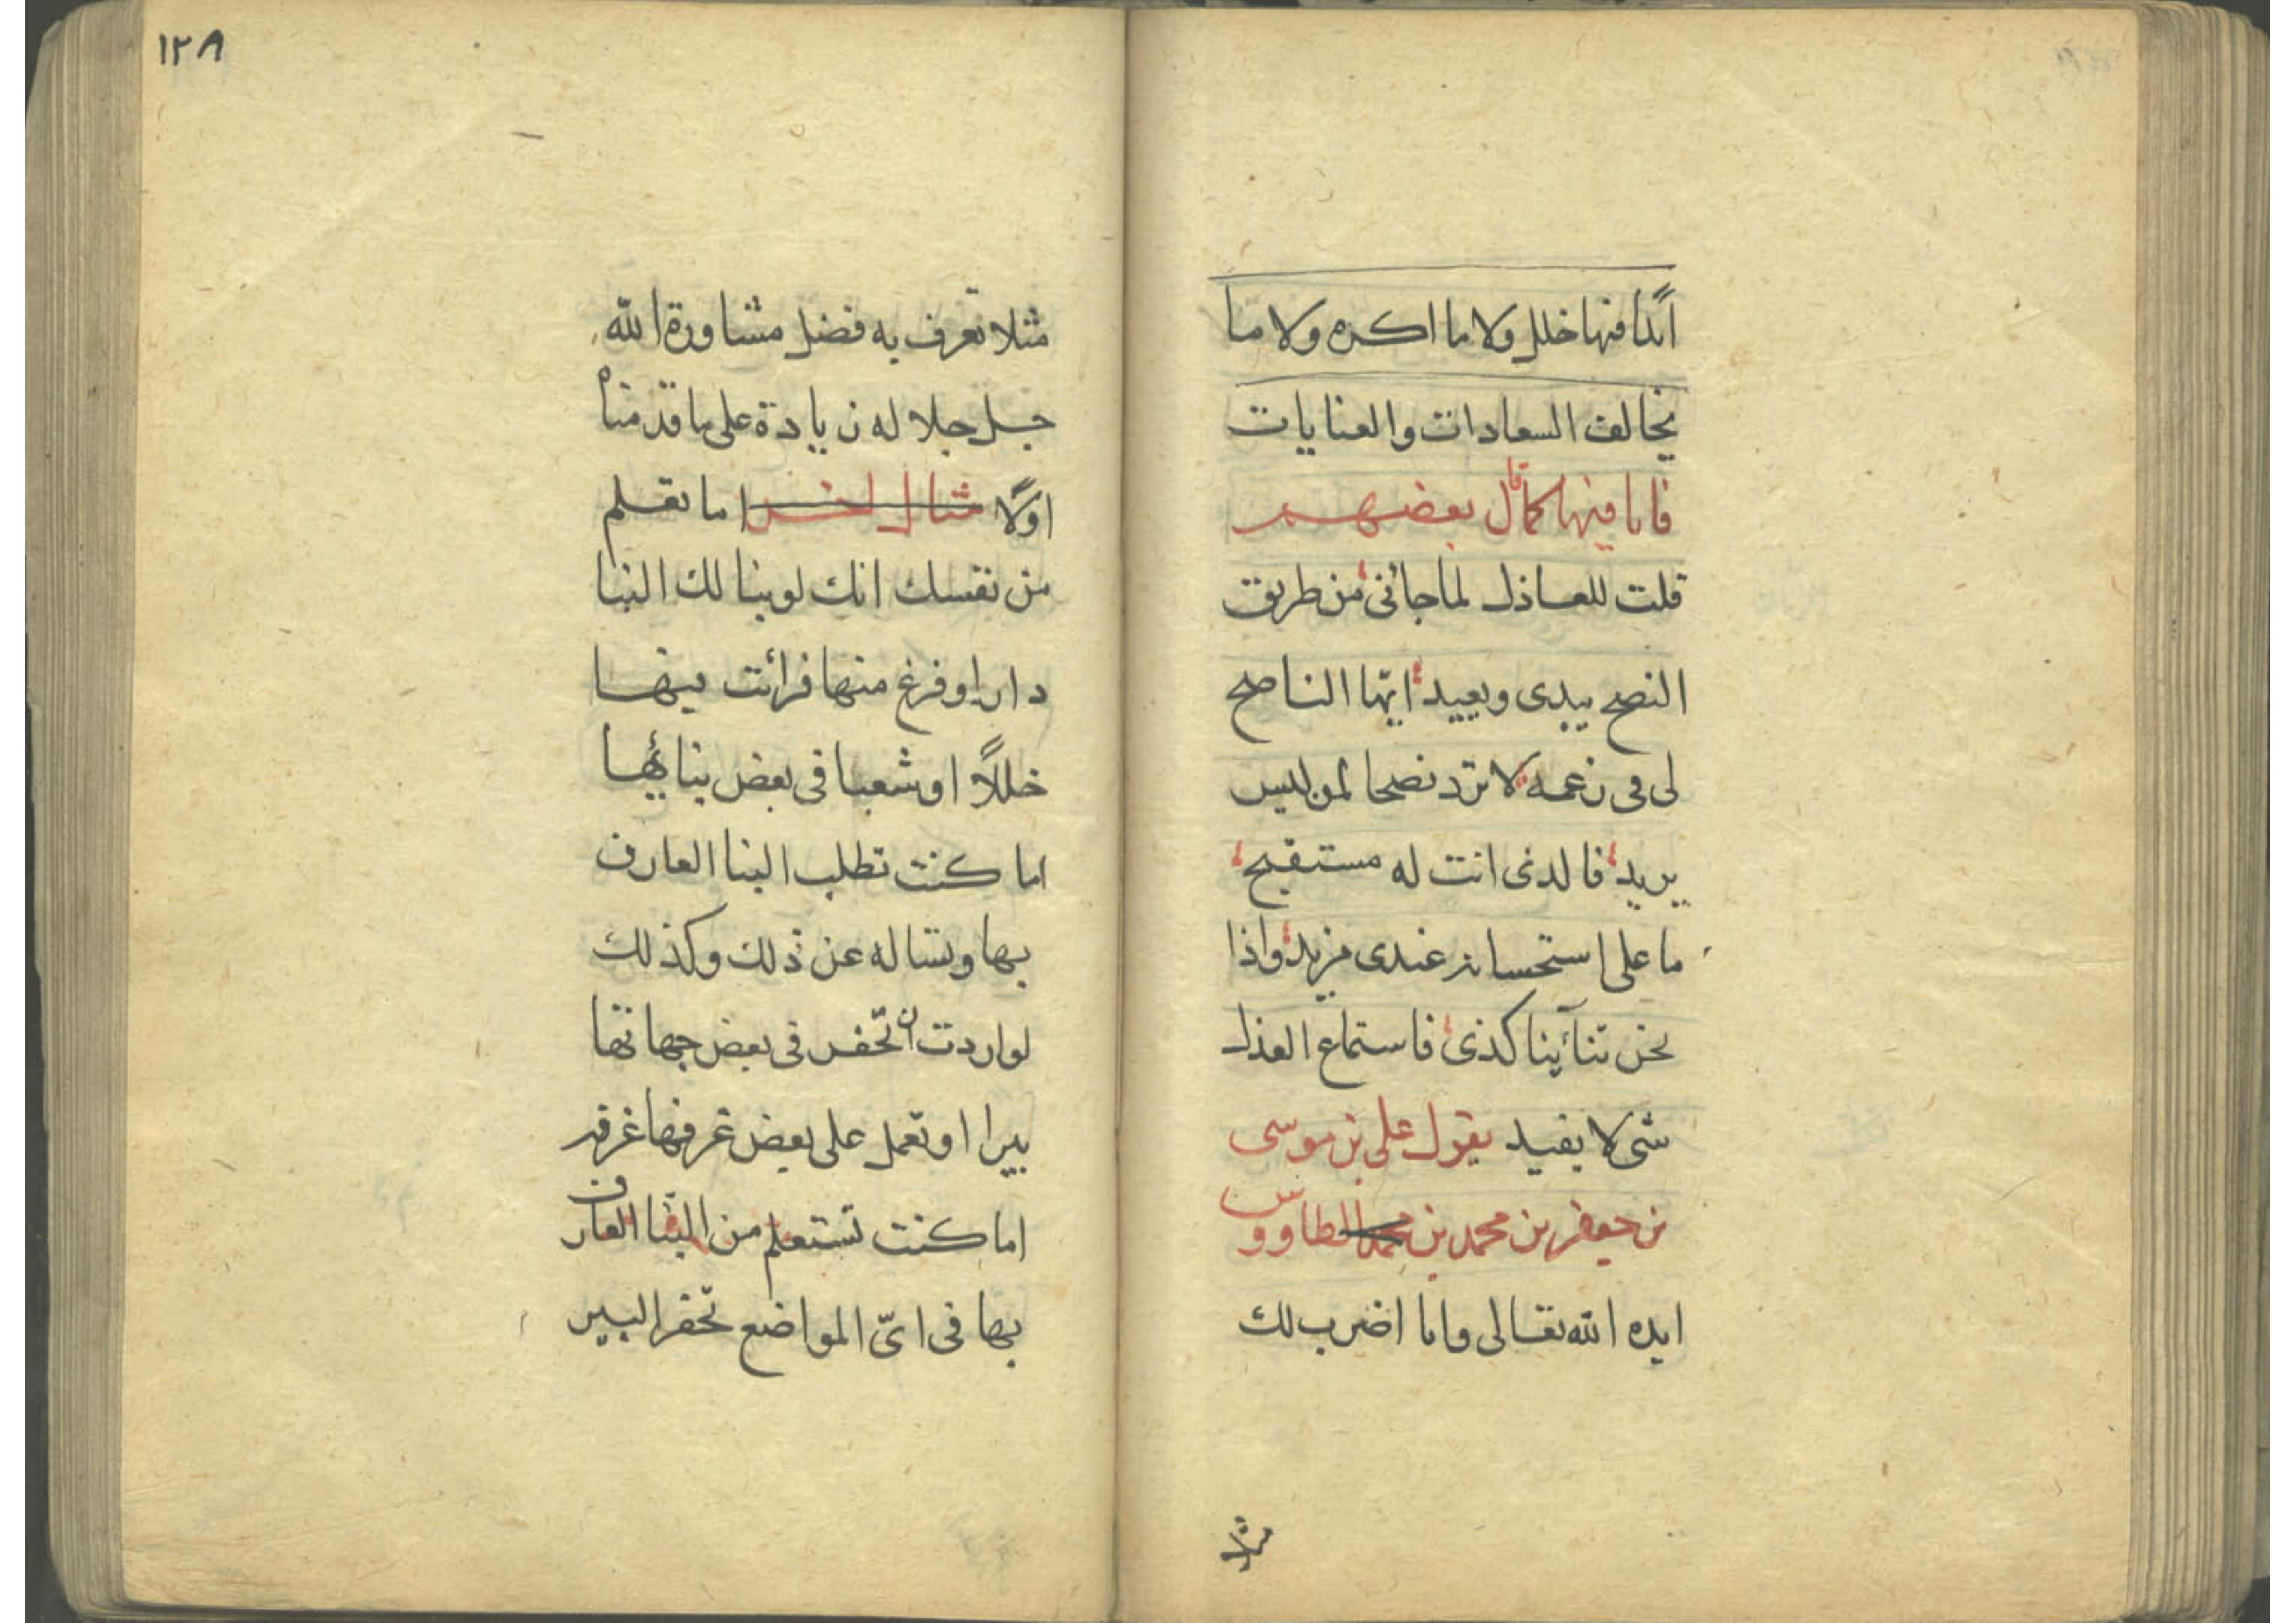 ابدًا فيها خلل ولا ما اكره ولا ما
يخالف السعادات والعنايات
فانا فيها كما قال بعضهم
قلت للعاذل لما جائنى من طريق
النصح يبدى ويعيد ايها الناصح
لى فى زعمه لا تزد نصحا لمن ليس
يريد فالذى انت له مستقبح
ما على استحسانه عندى مزيد واذا
نحن تنآئينا كذى فاستماع العذل
شى لا يفيد يقول على بن موسى
بن جعفر بن محمد بن محمد الطاووس
ايده الله تعالى وانا اضرب لك
مثلا
١٢٨
مثلا تعرف به فضل مشاورة الله
جل جلاله زيادة على ما قدمناه
اولًا مثال اخر اما تعلم
من نفسك انك لو بنا لك البنا
دارا وفرغ منها فرائت فيها
خللًا او شعبا فى بعض بنائها
اما كنت تطلب البنا العارف
بها وتساله عن ذلك وكذلك
لو اردت ان تحفر فى بعض جهاتها
بيرا او تعمل على بعض غرفها غرفه
اما كنت تستعلم من البنا العارف
بها فى اىّ المواضع تحفر البير